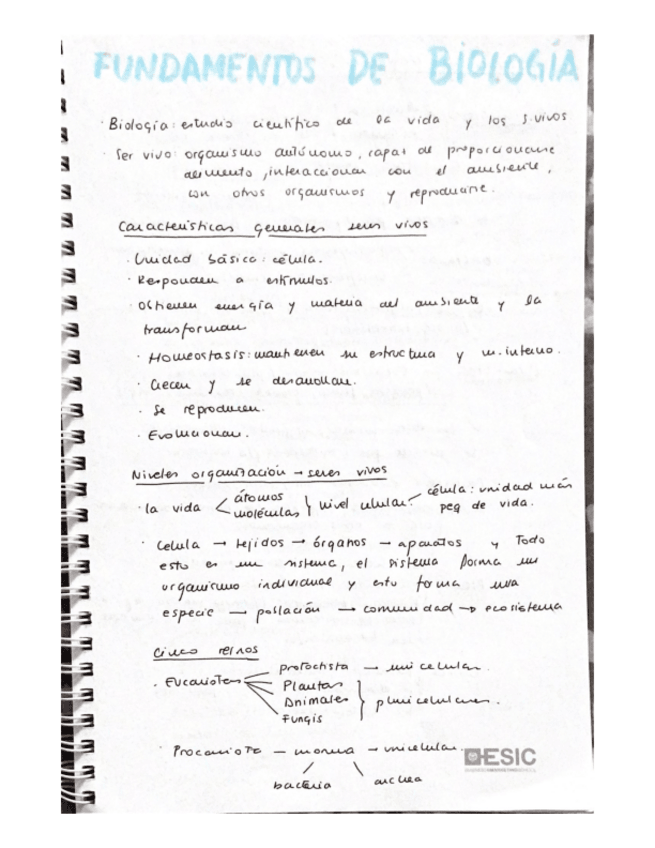 FUNDAMENTOS DE BIOLOGÍA
· Biología: estudio científico de la vida y los s. vivos
· Ser vivo: organismo autónomo, capaz de proporcionarse
alimento, interaccionar con el ambiente,
con otros organismos y reproducirse.
Características generales seres vivos
· Unidad básica: célula.
· Responden a estímulos.
· Obtienen energía y materia del ambiente y la
transforman
· Homeostasis: mantienen su estructura y m. interno.
· Crecen y se desarrollan.
· Se reproducen.
· Evolucionan.
Niveles organización → seres vivos
· la vida < átomos moléculas } nivel celular. célula: unidad más
peq de vida.
· Celula → tejidos → órganos → aparatos y Todo
esto es un sistema, el sistema forma un
organismo individual y esto forma una
especie → población → comunidad → ecosistema
Cinco reinos
· Eucariotas
protochista → unicelular.
Plantas
Animales } pluricelulares.
Fungis
· Procariota — monera → unicelular.
bacteria archea
ESIC